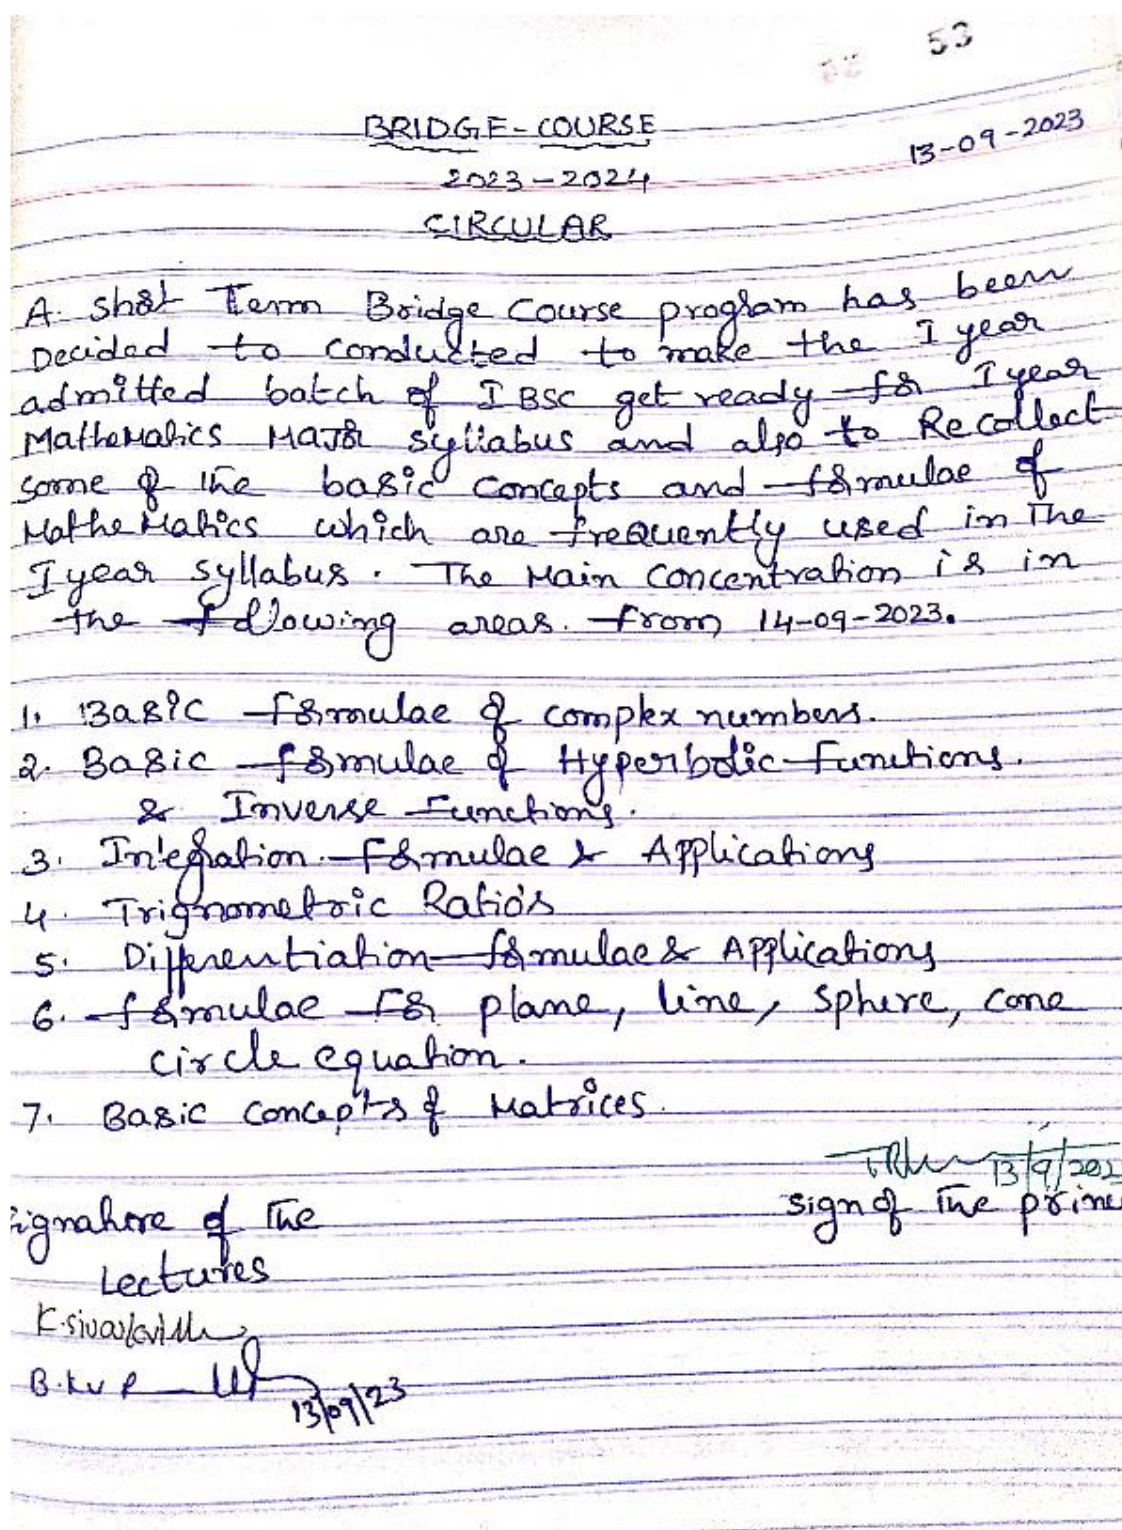 53
BRIDGE-COURSE
13-09-2023
2023-2024
CIRCULAR
A. Short Term Bridge Course program has been
Decided to conducted to make the I year
admitted batch of I BSC get ready for I year
Mathematics Major syllabus and also to Recollect
some of the basic concepts and formulae of
Mathematics which are frequently used in The
I year syllabus. The Main concentration is in
the following areas. From 14-09-2023.
1. Basic formulae of complex numbers.
2. Basic formulae of Hyperbolic Functions.
& Inverse Functions.
3. Integration Formulae & Applications
4. Trignometric Ratio's
5. Differentiation formulae & Applications
6. formulae For plane, line, sphere, cone
circle equation.
7. Basic Concepts of Matrices.
13/9/202
sign of The princ
ignature of The
Lectures
13/09/23